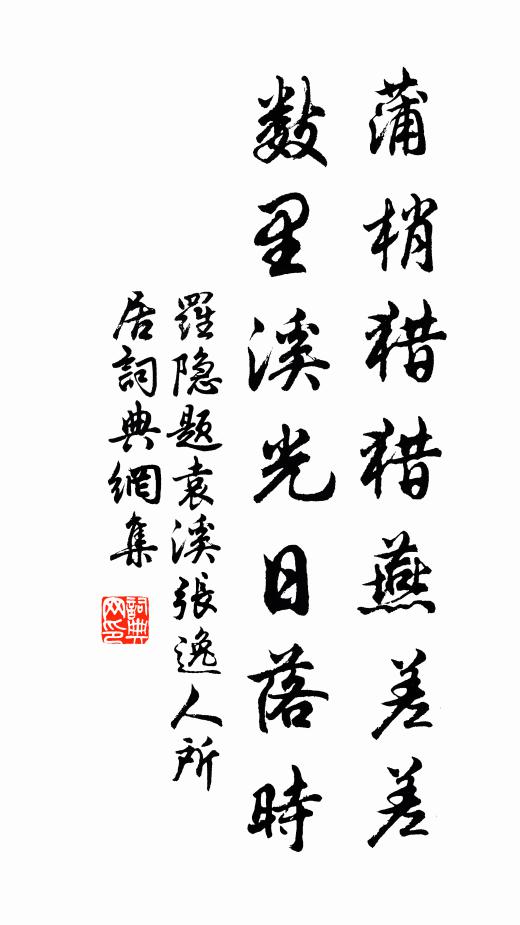 蒲梢猎猎燕差差
数里溪光日落時
羅隐题袁溪張逸人所
居詞典網集
詞典网印